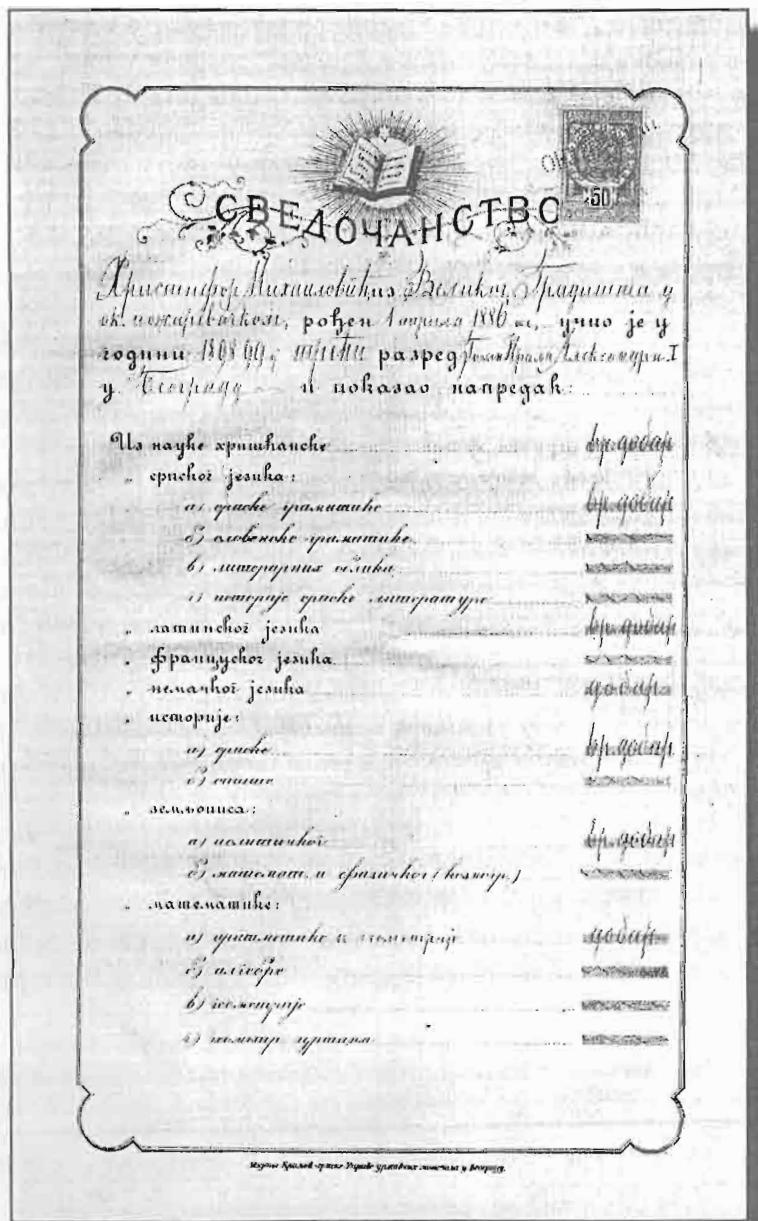 СВЕДОЧАНСТВО
50
Христифор Михаиловић из Великог Градишта у
ок. пожаревачком, рођен 1 априла 1886 г., учио је у
години 1898/99 ј трећи разред Гимн. Краља Александра I
у Београду и показао напредак:
Из науке хришћанске вр. добар
„ српског језика:
а) српске граматике вр. добар
б) словенске граматике
в) литерарних облика
г) историје српске литературе
„ латинског језика вр. добар
„ француског језика
„ немачког језика добар
„ историје:
а) српске вр. добар
б) опште
„ земљописа:
а) политичког вр. добар
б) математ. и физичког (космогр.)
„ математике:
а) аритметике и геометрије добар
б) алгебре
в) геометрије
г) геометр. цртања